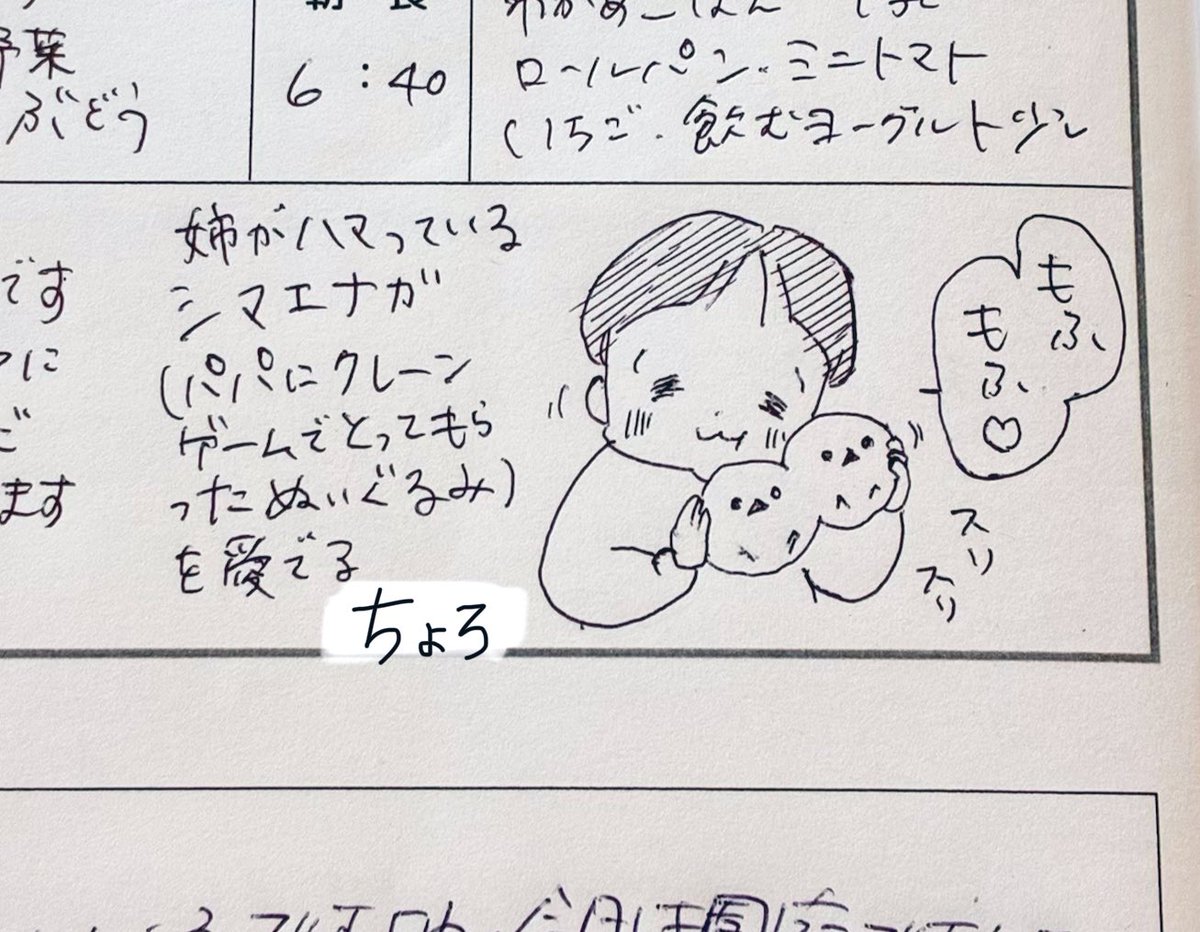 野菜
ぶどう
6:40
ロールパン・ミニトマト
いちご・飲むヨーグルト少し
です
に
ご
ます
姉がハマっている
シマエナガ
(パパにクレーン
ゲームでとってもら
ったぬいぐるみ)
を愛でる
ちょろ
もふ
もふ♡
スリ
スリ